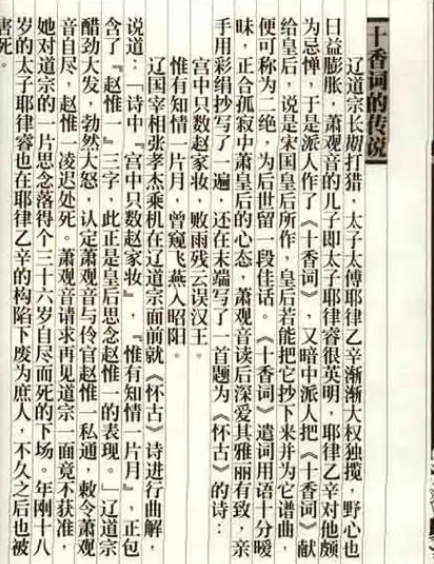 十香词的传说
辽道宗长期打猎，太子太傅耶律乙辛渐渐大权独揽，野心也
日益膨胀，萧观音的儿子即太子耶律睿很英明，耶律乙辛对他颇
为忌惮，于是派人作了《十香词》，又暗中派人把《十香词》献
给皇后，说是宋国皇后所作，皇后若能把它抄下来并为它谱曲，
便可称为二绝，为后世留一段佳话。《十香词》遣词用语十分暧
昧，正合孤寂中萧皇后的心态，萧观音读后深爱其雅丽有致，亲
手用彩绢抄写了一遍，还在末端写了一首题为《怀古》的诗：
宫中只数赵家妆，败雨残云误汉王。
惟有知情一片月，曾窥飞燕入昭阳。
辽国宰相张孝杰乘机在辽道宗面前就《怀古》诗进行曲解，
说道：「诗中『宫中只数赵家妆』，『惟有知情一片月』，正包
含了『赵惟一』三字，此正是皇后思念赵惟一的表现。」辽道宗
醋劲大发，勃然大怒，认定萧观音与伶官赵惟一私通，敕令萧观
音自尽，赵惟一凌迟处死。萧观音请求再见道宗一面竟不获准，
她对道宗的一片思念落得个三十六岁自尽而死的下场。年刚十八
岁的太子耶律睿也在耶律乙辛的构陷下废为庶人，不久之后也被
害死。